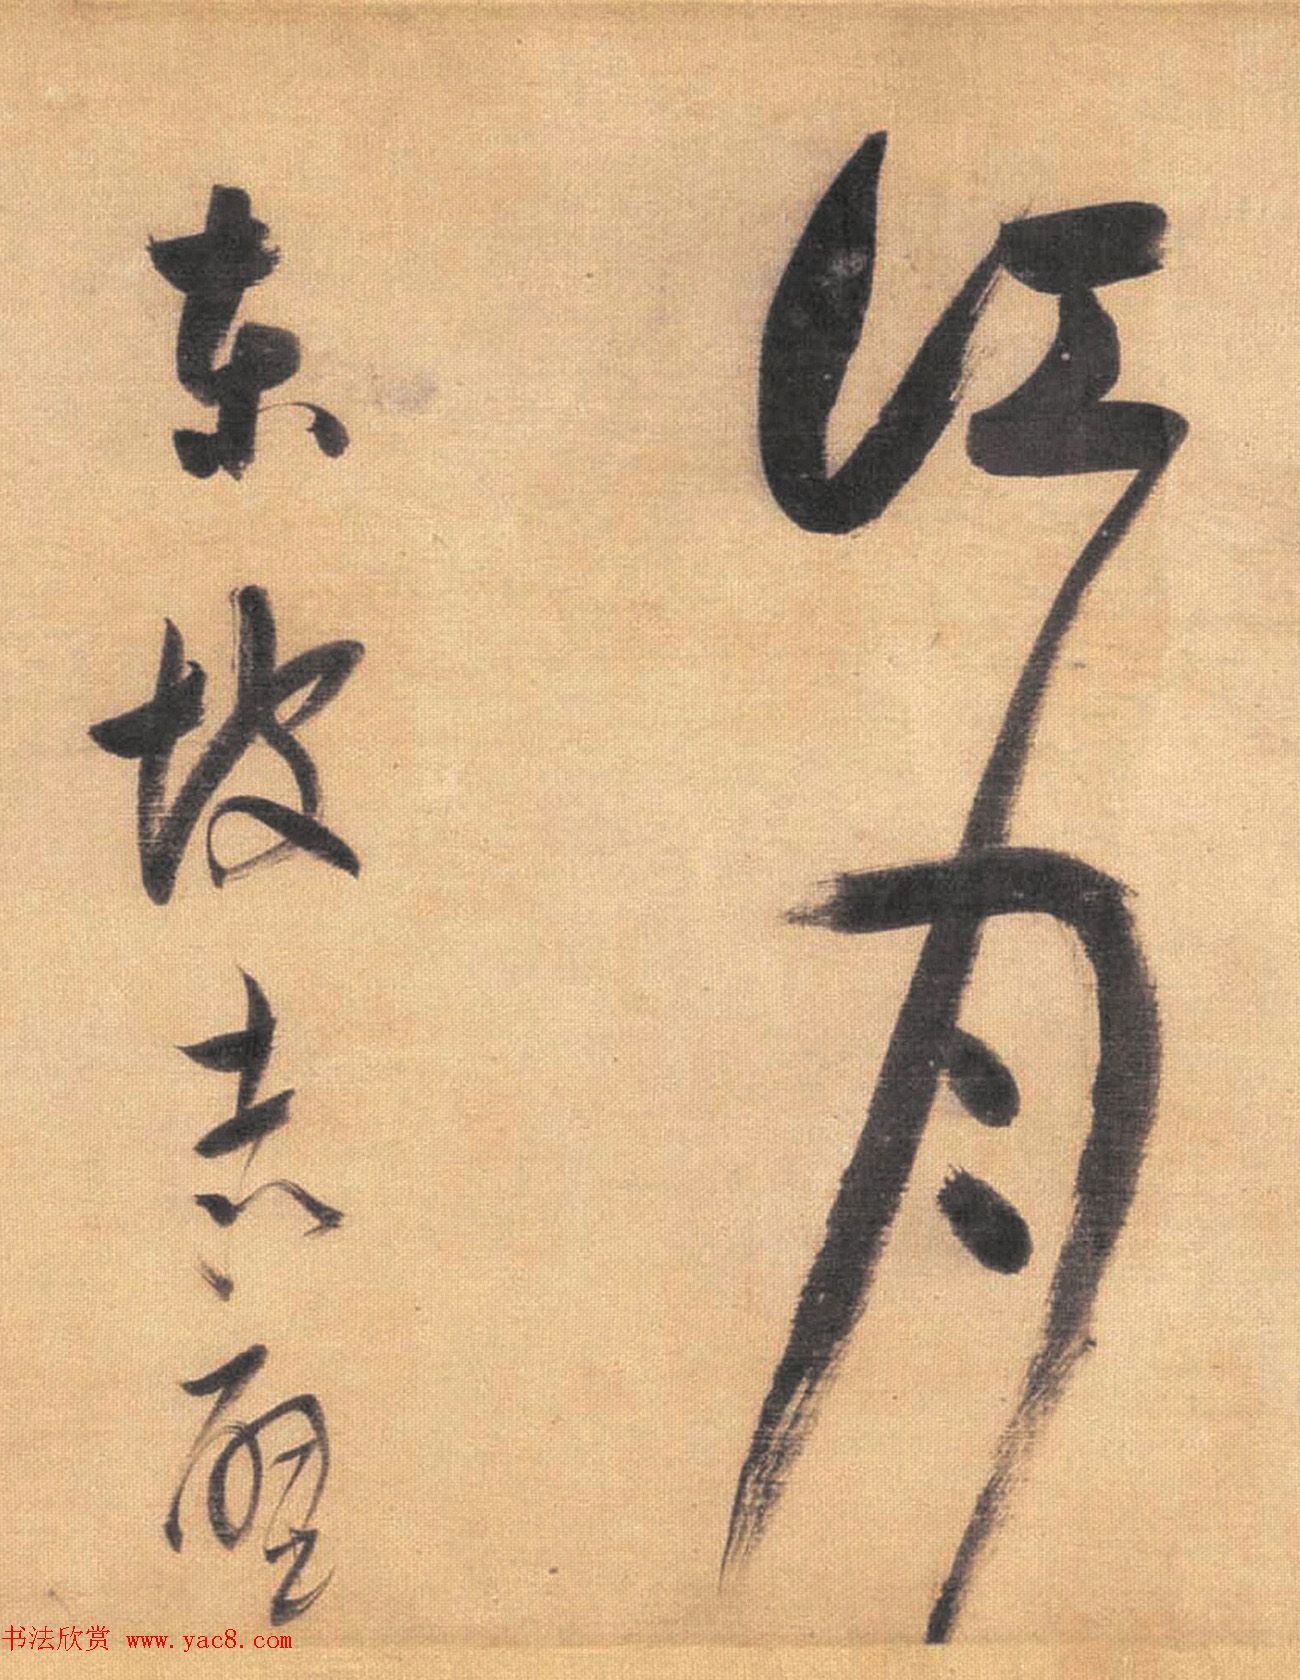 江月
東坡赤壁
书法欣赏 www.yac8.com